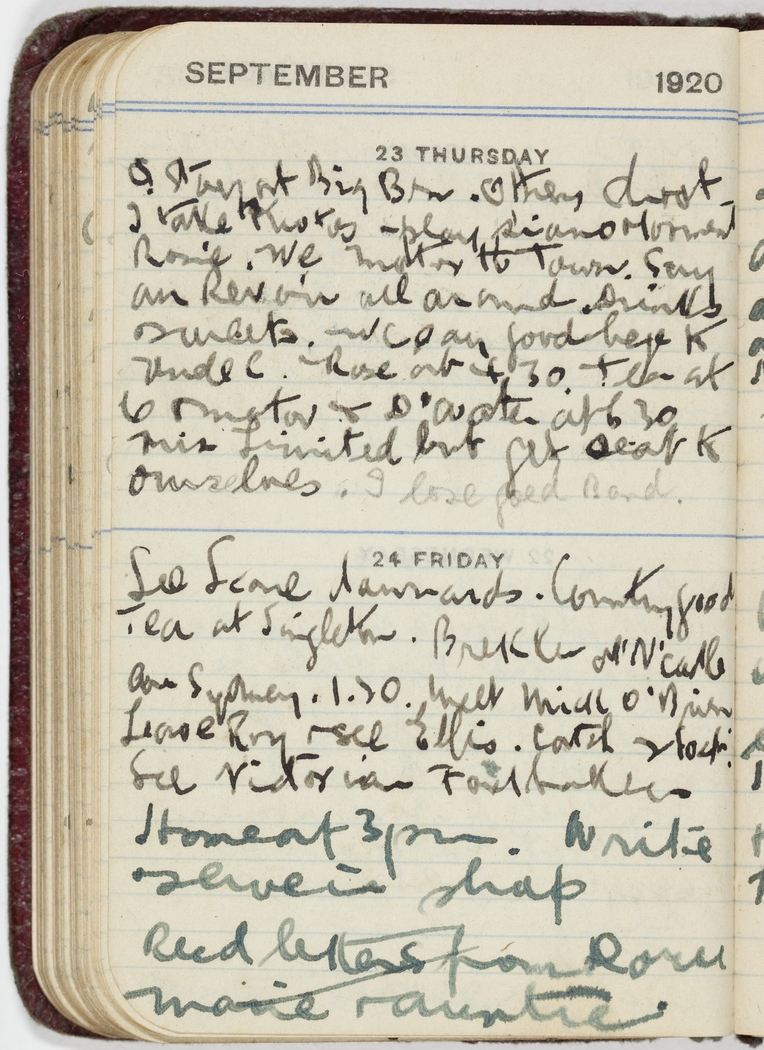 SEPTEMBER 1920
23 THURSDAY
S. Stay at Big Ben. Others
I take Photos - play piano
Rosie. We motor to Town. Say
au Revoir all around. Drinks
sweets. - We say good bye to
Uncle C. - Rose at 4.30. Tea at
6 & motor to at 6 30
miss Limited but get seat to
ourselves. I lose good Band.
24 FRIDAY
See Scone dawnards. Country good
Tea at Singleton. Brekker at N'castle
arr Sydney. 1.30. Meet Mick O'Brien
Leave Roy & see Ellis. Catch
See Victorian Footballers
Home at 3 pm. Write
& serve in shop
Recd letters from Dorn
Marie & auntie.